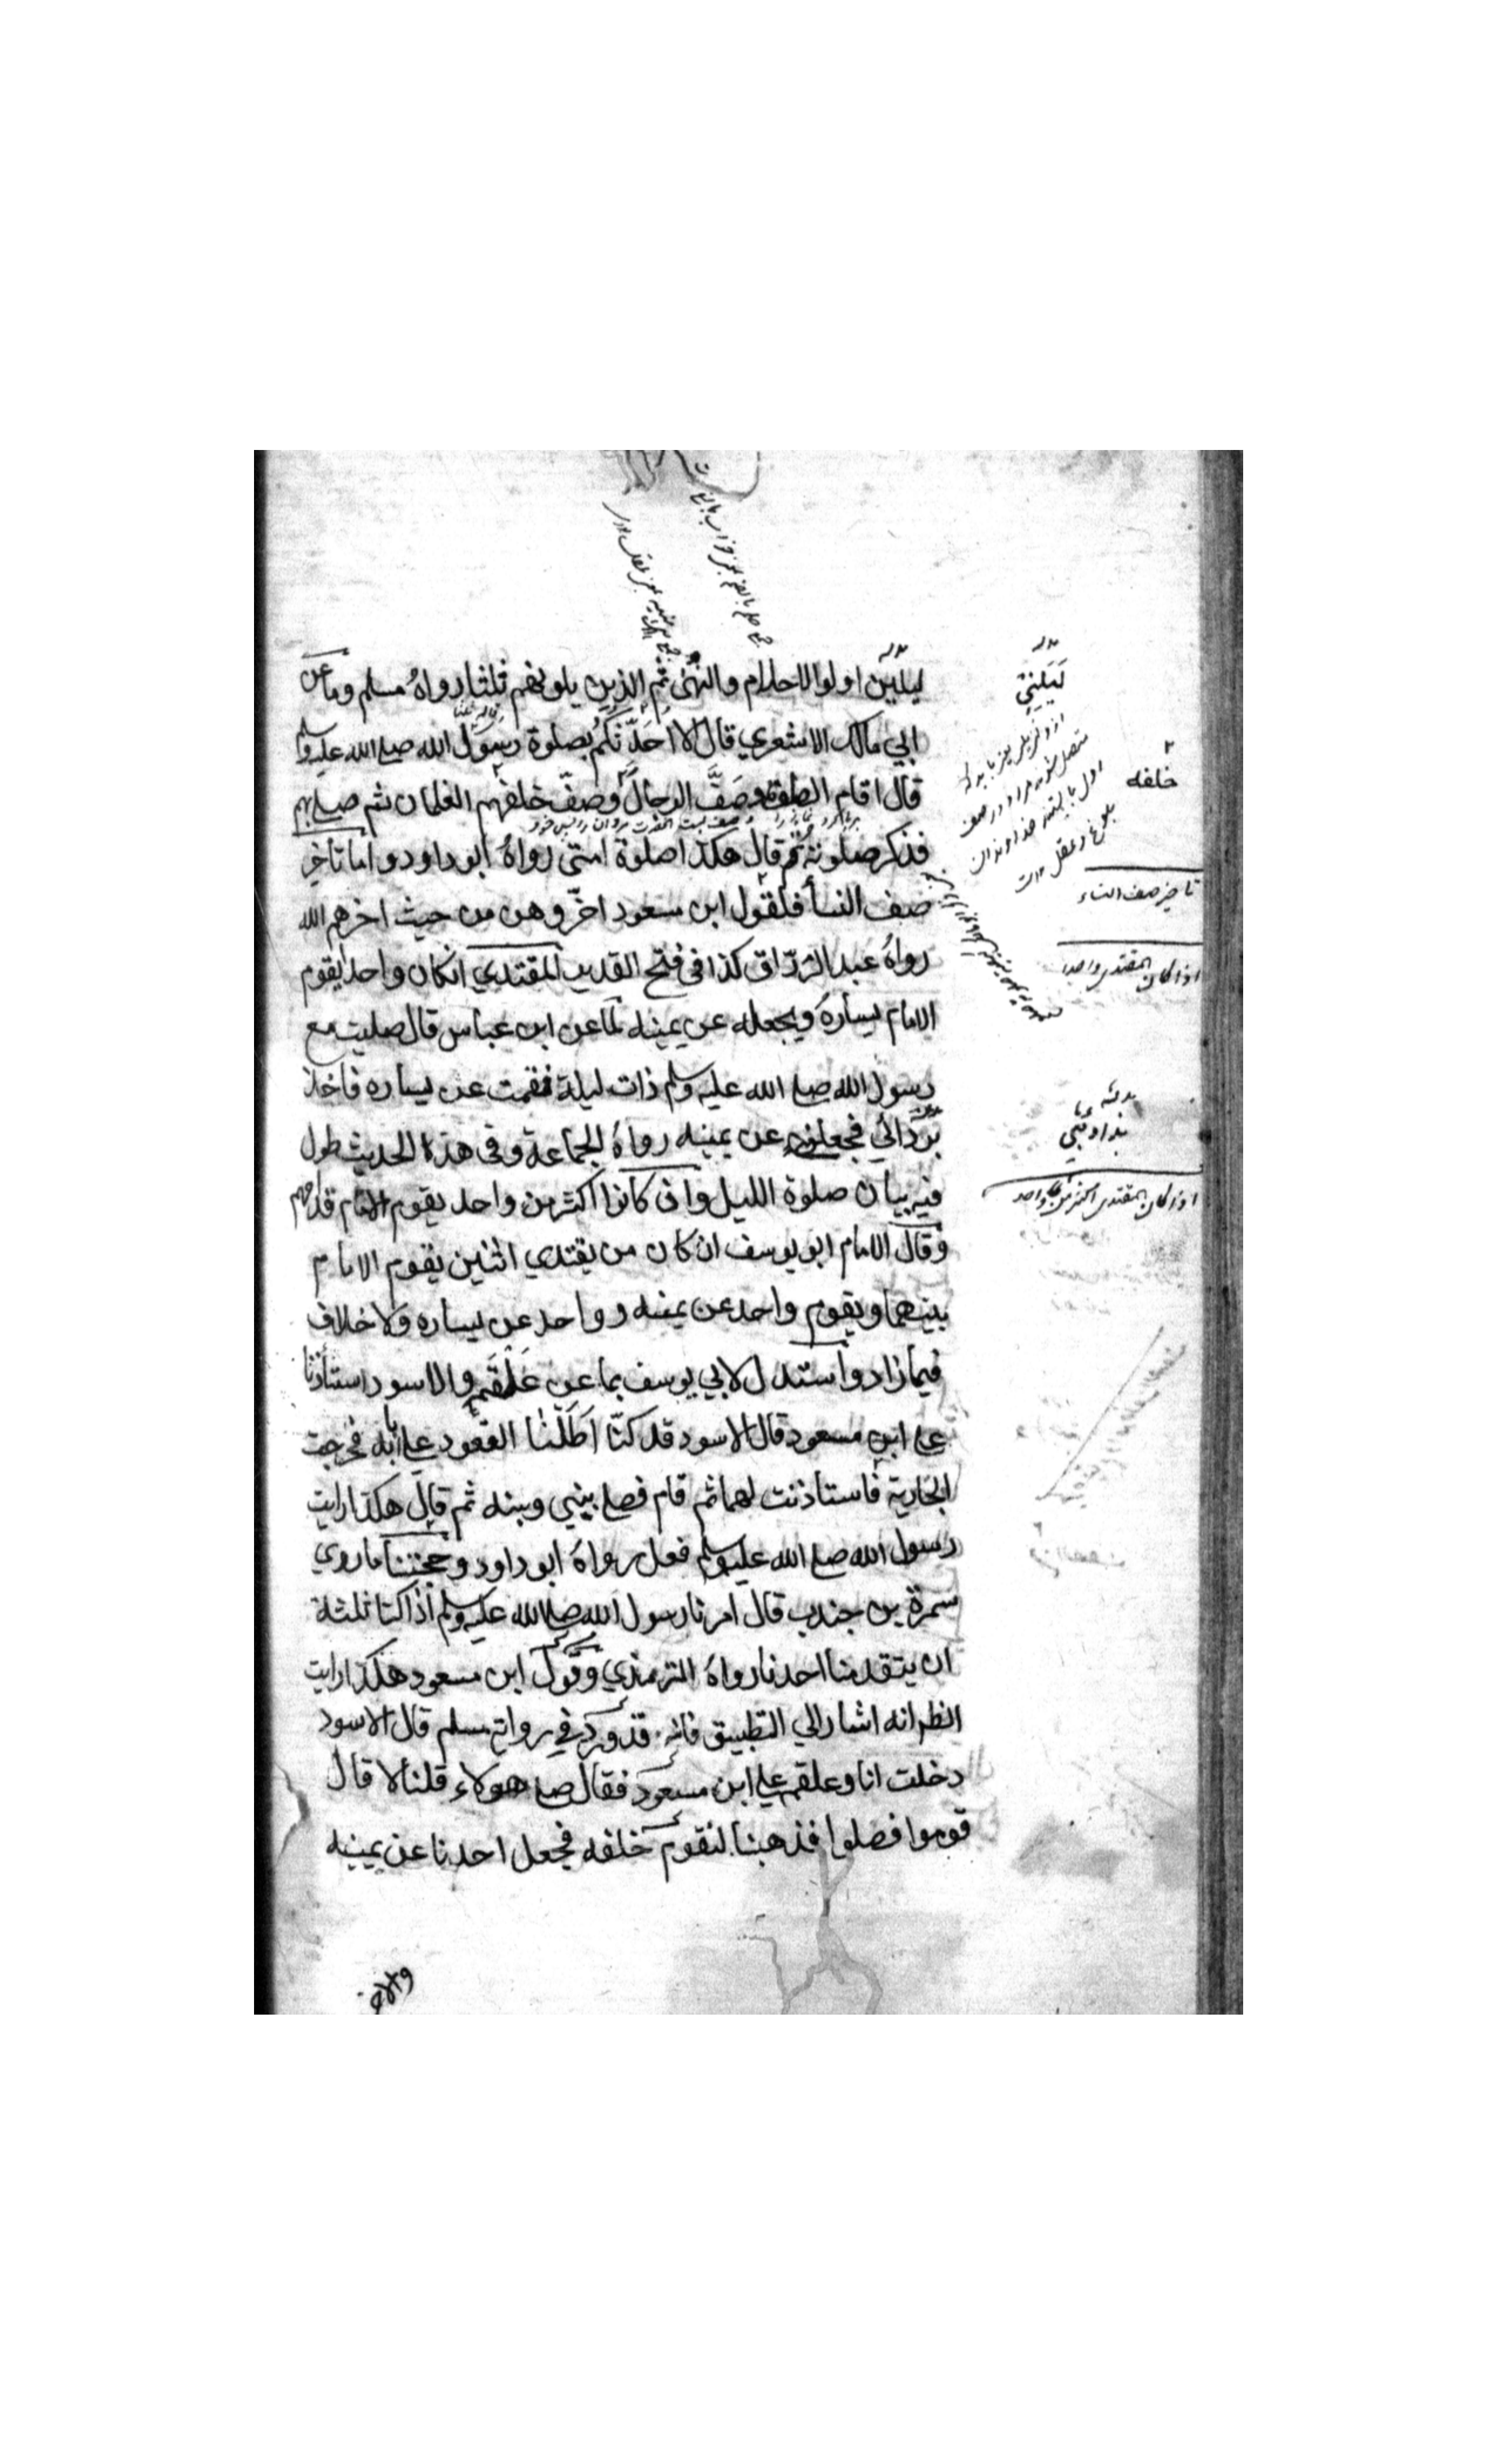 ليلين اولوا الاحلام والنهى ثم الذين يلونهم ثلثا رواه مسلم وما عن
ابي مالك الاشعري قال الا احدّثكم بصلوة رسول الله صلے الله عليه وسلم
قال اقام الصلوة وصَفَّ الرجالَ وصفّ خلفهم الغلمان ثم صلے بهم
فذكر صلوته ثم قال هكذا صلوة امتي رواه ابو داود واما تاخير
صف النسأ فلقول ابن مسعود اخّروهن من حيث اخرهم الله
رواه عبد الرزّاق كذا في فتح القدير المقتدي انكان واحدا يقوم
الامام يساره ويجعله عن يمينه لما عن ابن عباس قال صليت مع
رسول الله صلے الله عليه وسلم ذات ليلة فقمت عن يساره فاخذ
بردائي فجعلني عن يمينه رواه الجماعة وفي هذا الحديث طول
فيه بيان صلوة الليل وان كانوا اكثر من واحد يقوم الامام قدامهم
وقال الامام ابو يوسف ان كان من يقتدي اثنين يقوم الامام
بينهما ويقوم واحد عن يمينه وواحد عن يساره ولا خلاف
فيما زاد واستدل لابي يوسف بما عن عَلْقَمة والاسود استأذنا
علے ابن مسعود قال الاسود قد كنّا اَطَلْنا القعود علے بابه فخرجت
الجارية فاستاذنت لهما ثم قام فصلے بيني وبينه ثم قال هكذا رايت
رسول الله صلے الله عليه وسلم فعل رواه ابو داود وحجتنا ما روي
سمرة بن جندب قال امرنا رسول الله صلے الله عليه وسلم اذا كنا ثلثة
ان يتقدمنا احدنا رواه الترمذي وقول ابن مسعود هكذا رايت
انظر انه اشار الي التطبيق فانه قد ورد في رواية مسلم قال الاسود
دخلت انا وعلقمة علے ابن مسعود فقال صلے هولاء قلنا لا قال
قوموا فصلوا فذهبنا لنقوم خلفه فجعل احدنا عن يمينه
لَيَلِنيّ
خلفه
تاخير صف النساء
اذا كان المقتدي واحدا
اذا كان المقتدي اكثر من واحد